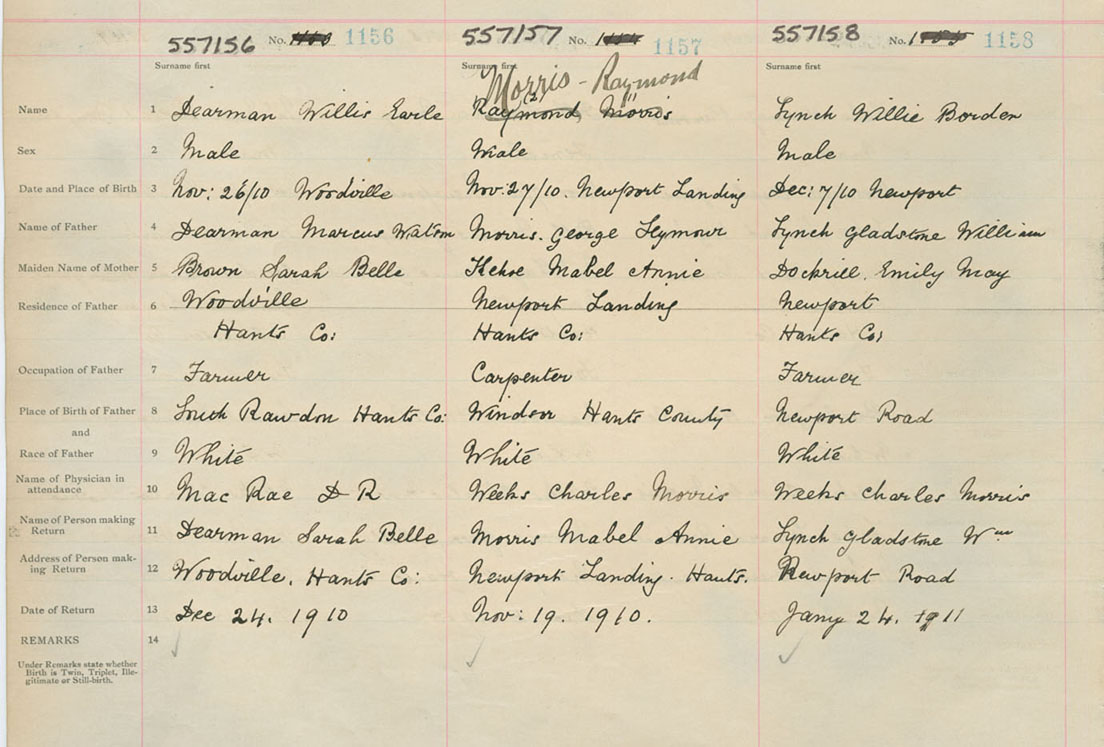 557156 No. 1156 557157 No. 1157 557158 No. 1158
Surname first Surname first Surname first
Morris - Raymond
Name 1 Dearman Willis Earle Raymond Morris Lynch Willie Borden
Sex 2 Male Male Male
Date and Place of Birth 3 Nov: 26/10 Woodville Nov: 27/10. Newport Landing Dec: 7/10 Newport
Name of Father 4 Dearman Marcus Watson Morris. George Seymour Lynch Gladstone William
Maiden Name of Mother 5 Brown Sarah Belle Kehoe Mabel Annie Dockrill, Emily May
Residence of Father 6 Woodville Newport Landing Newport
Hants Co: Hants Co: Hants Co:
Occupation of Father 7 Farmer Carpenter Farmer
Place of Birth of Father 8 South Rawdon Hants Co: Windsor Hants County Newport Road
and
Race of Father 9 White White White
Name of Physician in
attendance 10 Mac Rae D R Weeks Charles Morris Weeks Charles Morris
Name of Person making
Return 11 Dearman Sarah Belle Morris Mabel Annie Lynch Gladstone Wm
Address of Person mak-
ing Return 12 Woodville, Hants Co: Newport Landing. Hants. Newport Road
Date of Return 13 Dec 24. 1910 Nov: 19. 1910. Jany 24. 1911
REMARKS 14
Under Remarks state whether
Birth is Twin, Triplet, Ille-
gitimate or Still-birth.